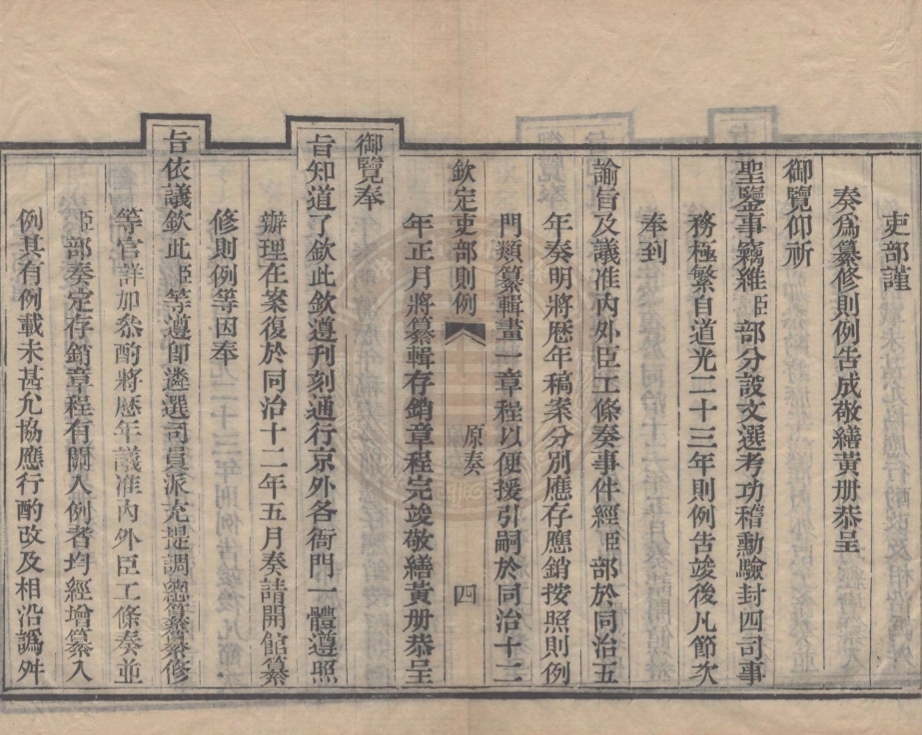 吏部謹
奏爲纂修則例告成敬繕黃册恭呈
御覽仰祈
聖鑒事竊維臣部分設文選考功稽勳驗封四司事
務極繁自道光二十三年則例告竣後凡節次
奉到
諭旨及議准內外臣工條奏事件經臣部於同治五
年奏明將歷年稿案分別應存應銷按照則例
門類纂輯畫一章程以便援引嗣於同治十二
欽定吏部則例 原奏 四
年正月將纂輯存銷章程完竣敬繕黃册恭呈
御覽奉
旨知道了欽此欽遵刊刻通行京外各衙門一體遵照
辦理在案復於同治十二年五月奏請開館纂
修則例等因奉
旨依議欽此臣等遵卽遴選司員派充提調總纂纂修
等官詳加叅酌將歷年議准內外臣工條奏並
臣部奏定存銷章程有關入例者均經增纂入
例其有例載未甚允協應行酌改及相沿譌舛